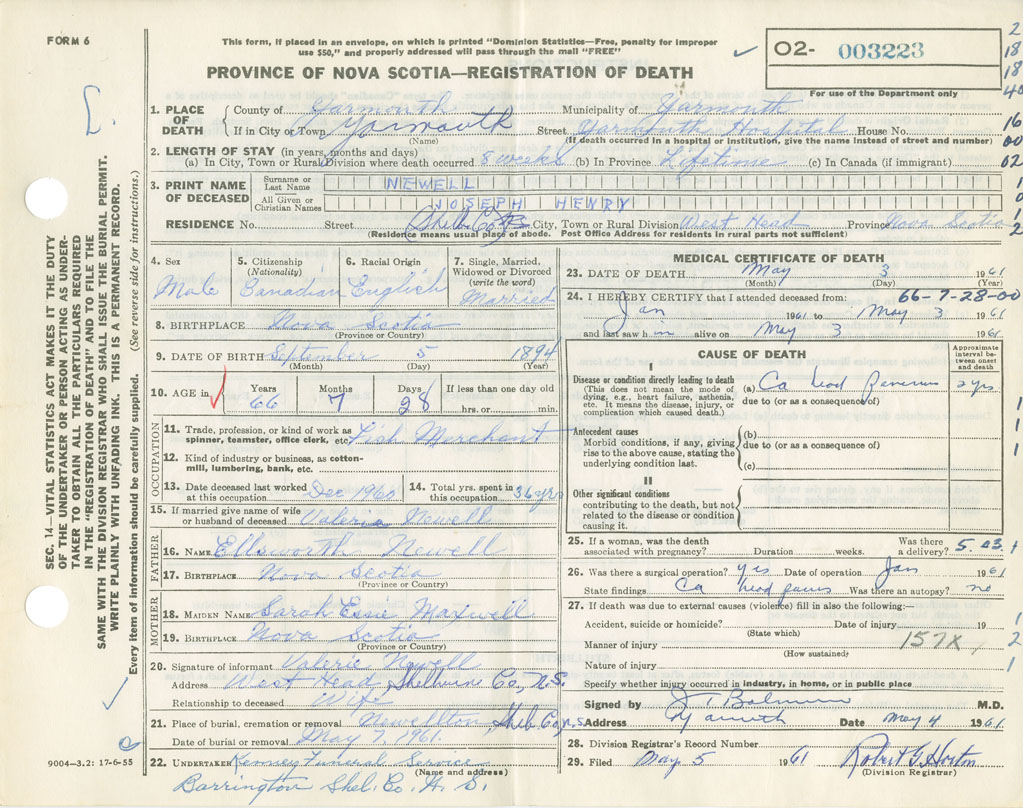 FORM 6
This form, if placed in an envelope, on which is printed "Dominion Statistics—Free, penalty for improper
use $50," and properly addressed will pass through the mail "FREE"
PROVINCE OF NOVA SCOTIA—REGISTRATION OF DEATH
02- 003223
For use of the Department only
2
18
18
40
16
00
02
1. PLACE OF DEATH County of Yarmouth Municipality of Yarmouth
If in City or Town Yarmouth Street Yarmouth Hospital House No.
(Name) (If death occurred in a hospital or institution, give the name instead of street and number)
2. LENGTH OF STAY (in years, months and days)
(a) In City, Town or Rural Division where death occurred 8 weeks (b) In Province Lifetime (c) In Canada (if immigrant)
3. PRINT NAME OF DECEASED Surname or Last Name NEWELL
All Given or Christian Names JOSEPH HENRY
RESIDENCE No. Street Shelb. Co. City, Town or Rural Division West Head Province Nova Scotia
(Residence means usual place of abode. Post Office Address for residents in rural parts not sufficient)
4. Sex Male
5. Citizenship (Nationality) Canadian
6. Racial Origin English
7. Single, Married, Widowed or Divorced (write the word) Married
8. BIRTHPLACE Nova Scotia
(Province or Country)
9. DATE OF BIRTH September 5 1894
(Month) (Day) (Year)
10. AGE in Years 66 Months 7 Days 28 If less than one day old hrs. or min.
OCCUPATION
11. Trade, profession, or kind of work as spinner, teamster, office clerk, etc. Fish Merchant
12. Kind of industry or business, as cotton-mill, lumbering, bank, etc.
13. Date deceased last worked at this occupation Dec 1960 14. Total yrs. spent in this occupation 36 yrs
15. If married give name of wife or husband of deceased Valeria Newell
FATHER
16. NAME Ellsworth Newell
17. BIRTHPLACE Nova Scotia
(Province or Country)
MOTHER
18. MAIDEN NAME Sarah Essie Maxwell
19. BIRTHPLACE Nova Scotia
(Province or Country)
20. Signature of informant Valerie Newell
Address West Head, Shelburne Co, N.S.
Relationship to deceased Wife
21. Place of burial, cremation or removal Newellton, Shelb. Co, N.S.
Date of burial or removal May 7, 1961.
22. UNDERTAKER Kenney Funeral Service
(Name and address)
Barrington Shel. Co. N. S.
MEDICAL CERTIFICATE OF DEATH
23. DATE OF DEATH May 3 1961
(Month) (Day) (Year)
24. I HEREBY CERTIFY that I attended deceased from: 66-7-28-00
Jan 1961 to May 3 1961
and last saw him alive on May 3 1961
CAUSE OF DEATH
Approximate interval between onset and death
I
Disease or condition directly leading to death (a) Ca head Pancreas 2 yrs
(This does not mean the mode of dying, e.g., heart failure, asthenia, etc. It means the disease, injury, or complication which caused death.) due to (or as a consequence of)
Antecedent causes
Morbid conditions, if any, giving rise to the above cause, stating the underlying condition last. (b) due to (or as a consequence of)
(c)
II
Other significant conditions
contributing to the death, but not related to the disease or condition causing it.
25. If a woman, was the death associated with pregnancy? Duration weeks. Was there a delivery?
26. Was there a surgical operation? yes Date of operation Jan 1961
State findings Ca head Was there an autopsy? no
27. If death was due to external causes (violence) fill in also the following:—
Accident, suicide or homicide? Date of injury 19
(State which)
Manner of injury 157X
(How sustained)
Nature of injury
Specify whether injury occurred in industry, in home, or in public place
Signed by M.D.
Address Yarmouth Date May 4 1961.
28. Division Registrar's Record Number
29. Filed May 5 1961 Robert G. Horton
(Division Registrar)
SEC. 14—VITAL STATISTICS ACT MAKES IT THE DUTY
OF THE UNDERTAKER OR PERSON ACTING AS UNDER-
TAKER TO OBTAIN ALL THE PARTICULARS REQUIRED
IN THE "REGISTRATION OF DEATH" AND TO FILE THE
SAME WITH THE DIVISION REGISTRAR WHO SHALL ISSUE THE BURIAL PERMIT.
WRITE PLAINLY WITH UNFADING INK. THIS IS A PERMANENT RECORD.
Every item of information should be carefully supplied. (See reverse side for instructions.)
9004—3.2: 17-6-55